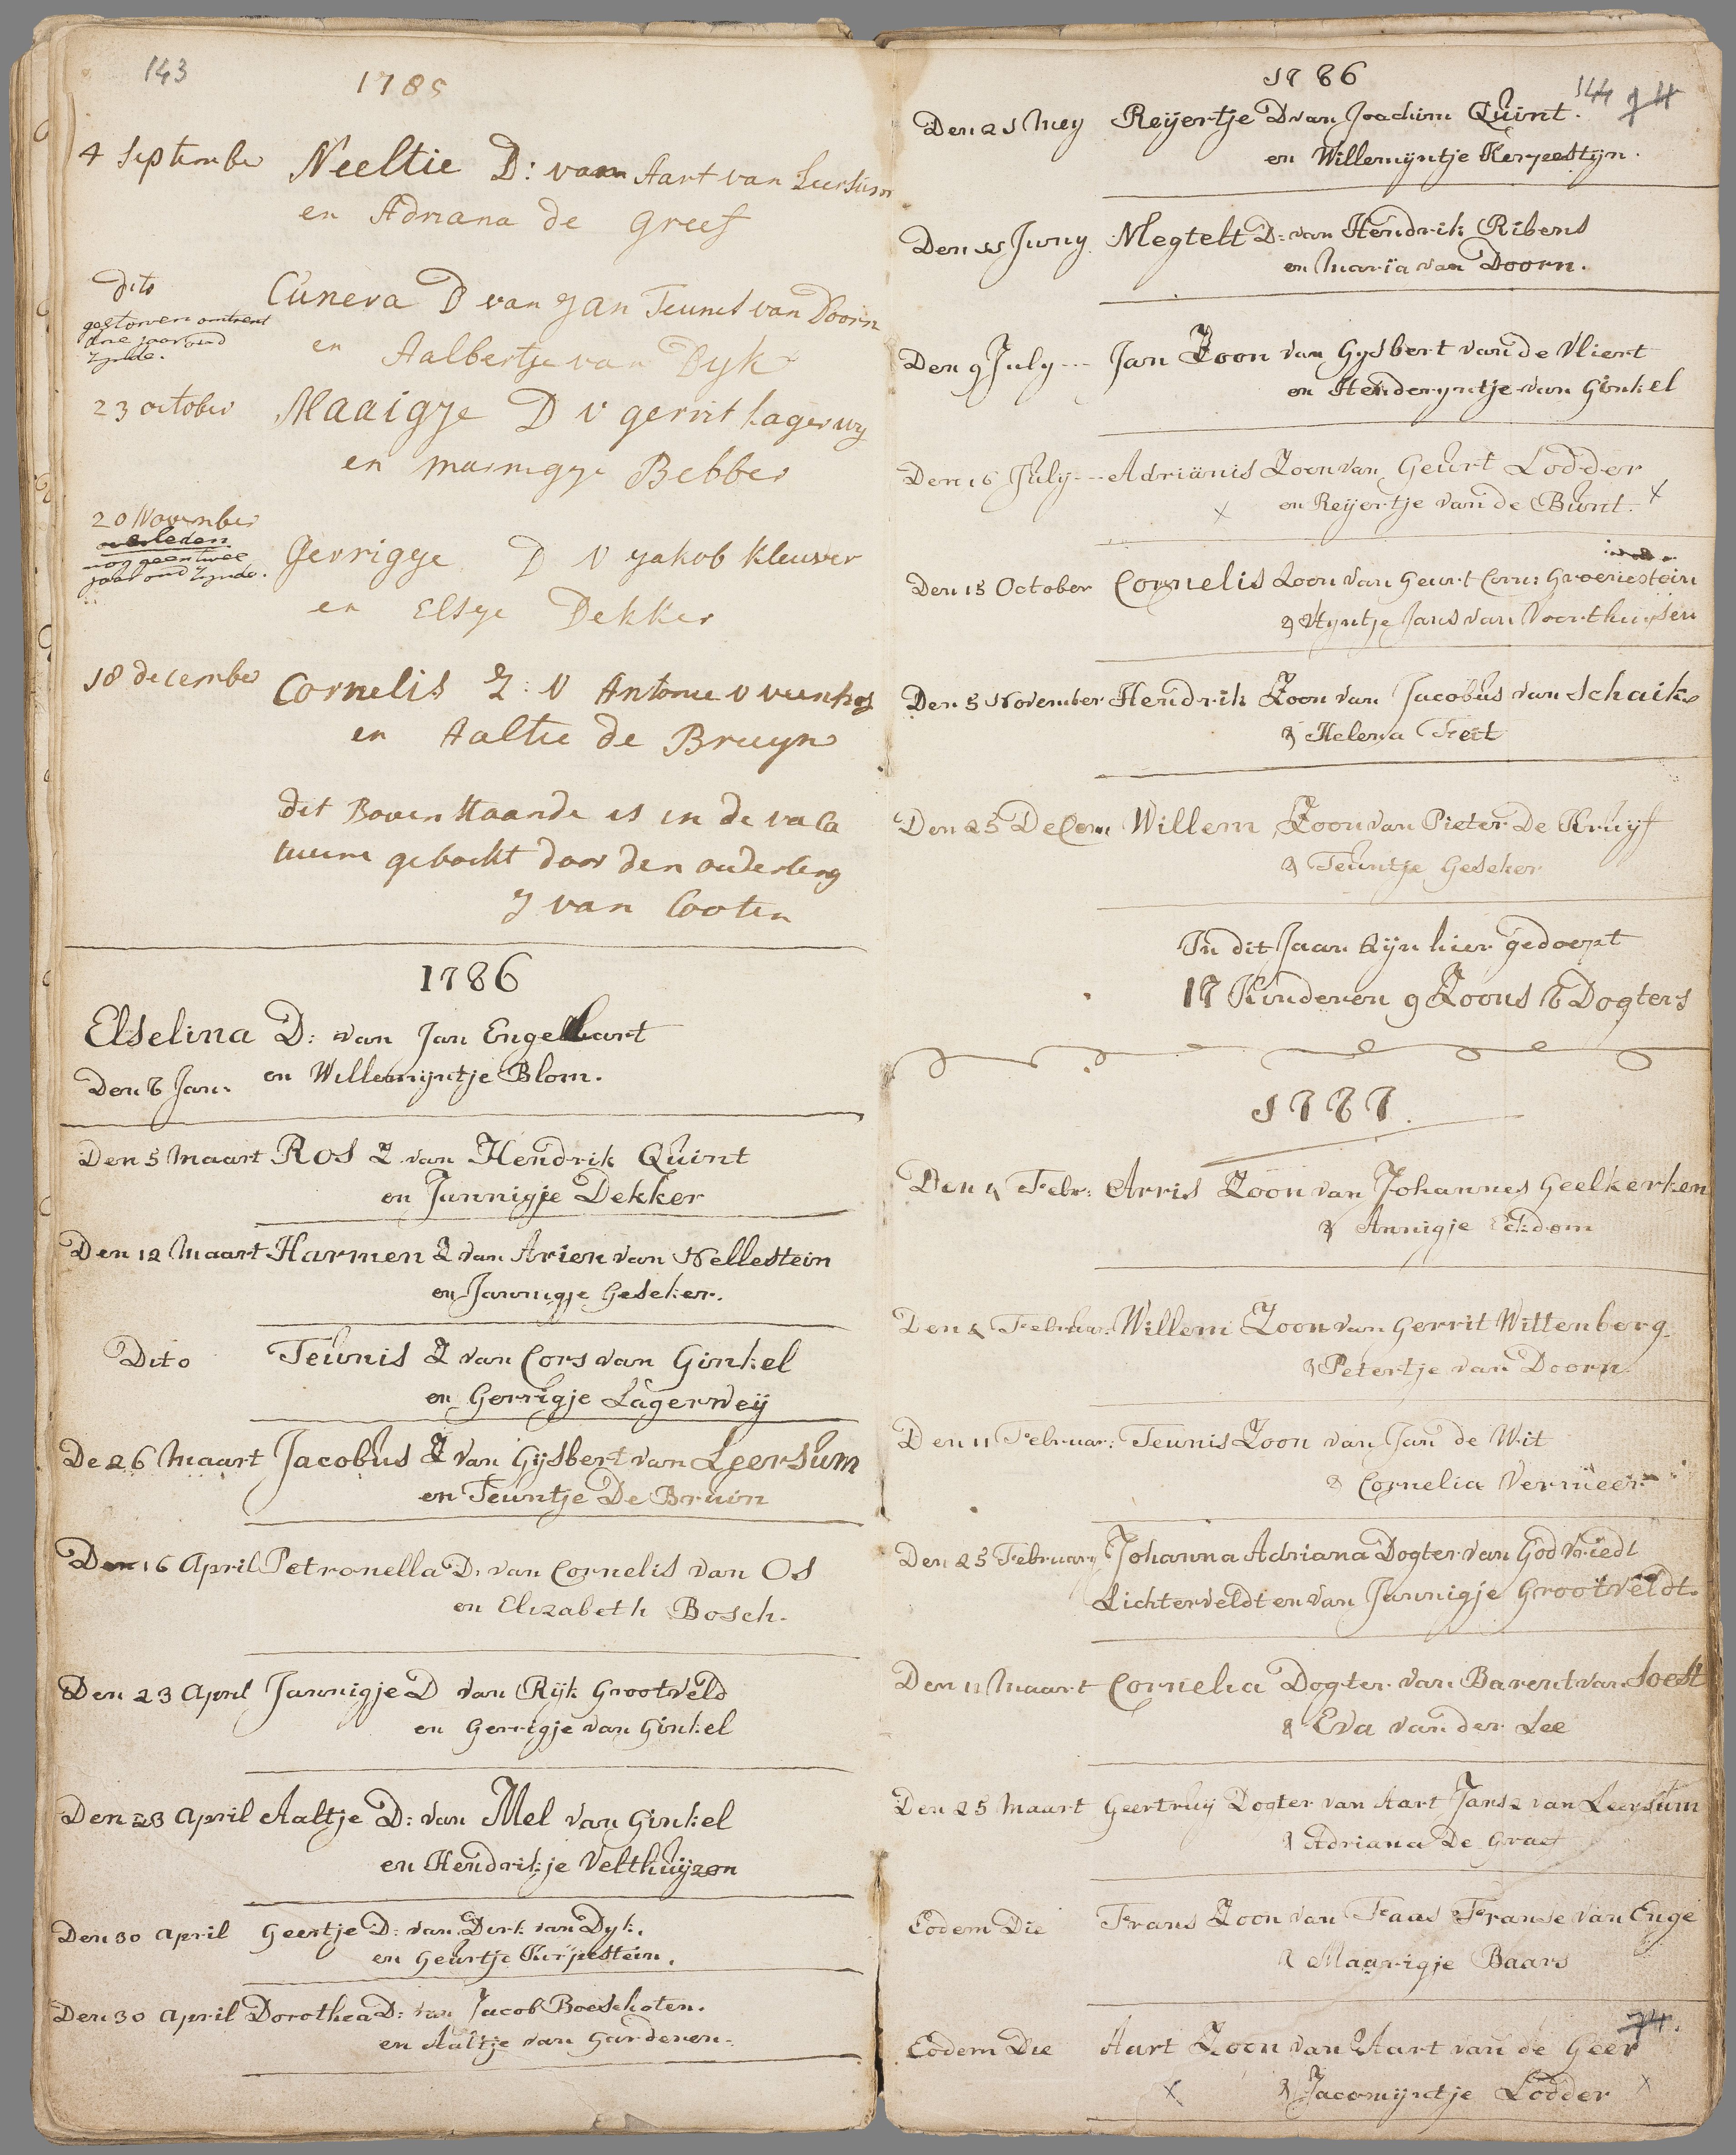 143
1785
4 September Neeltie D: van Aart van Leersum
en Adriana de Greef
dito Cunera D van Jan Teunis van Doorn
gestorven omtrent
drie jaar oud
zynde.
en Aalbertje van Dyk
23 october Maaigje D v gerrit Lagerwy
en marrigje Bebber
20 November
overleden
nog geen twee
jaar oud zynde.
Gerrigje D V yakob Kleuver
en Elsje Dekker
18 december Cornelis Z: V Antonie v veenhof
en Aaltie de Bruyn
dit Boven staande is in de vaca
tuure geboekt door den ouderling
J van Cooten
1786
Elselina D: van Jan Engelhart
Den 8 Jan: en Willemijntje Blom.
Den 5 Maart Ros Z van Hendrik Quint
en Jannigje Dekker
Den 12 Maart Harmen Z van Arien van Nellestein
en Jannigje Geseker.
Dito Teunis Z van Cors van Ginkel
en Gerrigje Lagerweij
De 26 Maart Jacobus Z van Gijsbert van Leersum
en Teuntje De Bruin
Den 16 April Petronella D. van Cornelis van Os
en Elizabeth Bosch.
Den 23 April Jannigje D van Rijk Grootveld
en Gerrigje van Ginkel
Den 23 April Aaltje D: van Mel van Ginkel
en Hendrikje Velthuijzen
Den 30 April Geertje D: van Dirk van Dyk.
en Geurtje Kerpestein.
Den 30 April Dorothea D: van Jacob Boeschoten.
en Aaltje van Garderen.
1786
144
Den 21 Mey Reijertje D van Joachim Quint.
en Willemijntje Kerpestijn.
Den 11 Juny Megtelt D: van Hendrik Ribens
en Maria van Doorn.
Den 9 July --- Jan Zoon van Gysbert van de Vliert
en Henderyntje van Ginkel
Den 16 July --- Adrianis Zoon van Geurt Lodder
x en Reijertje van de Bunt. x
Den 15 October Cornelis Zoon van Geurt Corn: Groenestein
& Wyntje Jans van Voorthuysen
Den 5 November Hendrik Zoon van Jacobus van Schaik
& Helena Feit
Den 25 Decem Willem Zoon van Pieter De Kruyf
& Teuntje Geseker
In dit Jaar Zijn hier gedoopt
17 Kinderen 9 Zoons 8 Dogters
1787.
Den 4 Febr: Arris Zoon van Johannes Geelkerken
& Annigje Eckdom
Den 4 Februar: Willem Zoon van Gerrit Wittenberg
& Petertje van Doorn
Den 11 Februar: Teunis Zoon van Jan de Wit
& Cornelia Vermeer
Den 25 February Johanna Adriana Dogter van Godvriedt
Lichterveldt en van Jannigje Grootveldt.
Den 11 Maart Cornelia Dogter van Barent van Soest
& Eva van der Lee
Den 25 Maart Geertruy Dogter van Aart Jansz van Leersum
& Adriana De Graef
Eodem Die Frans Zoon van Faas Franse van Enge
& Maarigje Baars
74.
Eodem Die Aart Zoon van Aart van de Geer
x & Jacomijntje Lodder x